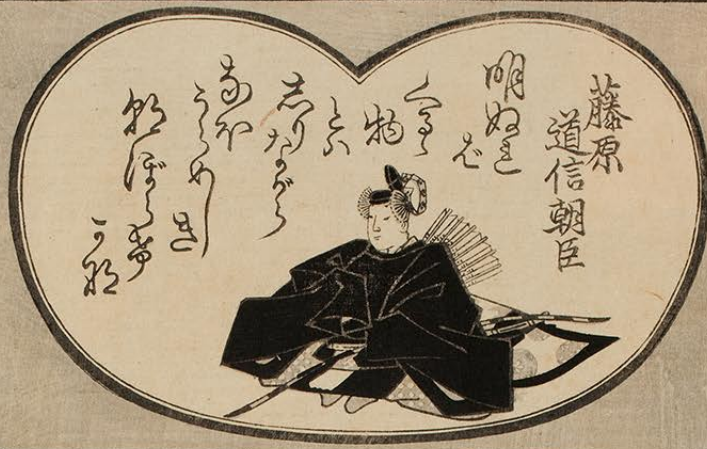 藤原
道信朝臣
明ぬれ
ば
くるゝ
物
とハ
しりながら
なほ
うらめしき
朝ぼらけ
かな